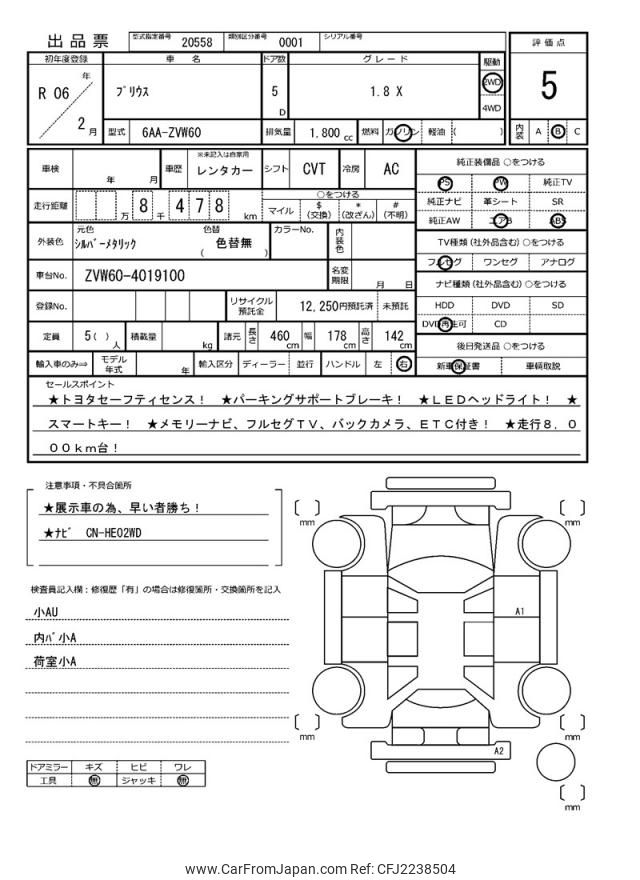 出品票 型式指定番号 20558 類別区分番号 0001 シリアル番号
評価点
5
内装 A B C
初年度登録 車名 ドア数 グレード 駆動
R 06 年 2月
プリウス
5 D
1.8 X
2WD
4WD
型式 6AA-ZVW60 排気量 1.800 cc 燃料 ガソリン 軽油 ( )
車検 年 月 車歴 ※未記入は自家用 レンタカー シフト CVT 冷房 AC
走行距離 万 8 千 4 7 8 km
○をつける
マイル $(交換) *(改ざん) #(不明)
外装色 元色 シルバーメタリック 色替 ( 色替無 ) カラーNo. 内装色
車台No. ZVW60-4019100 名変期限 月 日
登録No. リサイクル預託金 12,250円預託済 未預託
定員 5( )人 積載量 kg 諸元 長さ 460cm 幅 178cm 高さ 142cm
輸入車のみ⇒ モデル年式 年 輸入区分 ディーラー 並行 ハンドル 左 右
純正装備品 ○をつける
PS PW 純正TV
純正ナビ 革シート SR
純正AW エアB ABS
TV種類(社外品含む)○をつける
フルセグ ワンセグ アナログ
ナビ種類(社外品含む)○をつける
HDD DVD SD
DVD再生可 CD
後日発送品 ○をつける
新車保証書 車輌取説
セールスポイント
★トヨタセーフティセンス! ★パーキングサポートブレーキ! ★LEDヘッドライト! ★
スマートキー! ★メモリーナビ、フルセグTV、バックカメラ、ETC付き! ★走行8,0
00km台!
注意事項・不具合箇所
★展示車の為、早い者勝ち!
★ナビ CN-HE02WD
検査員記入欄:修復歴「有」の場合は修復箇所・交換箇所を記入
小AU
内バ小A
荷室小A
ドアミラー キズ ヒビ ワレ
工具 無 ジャッキ 無
mm
mm
A1
mm
mm
A2
mm
www.CarFromJapan.com Ref: CFJ2238504